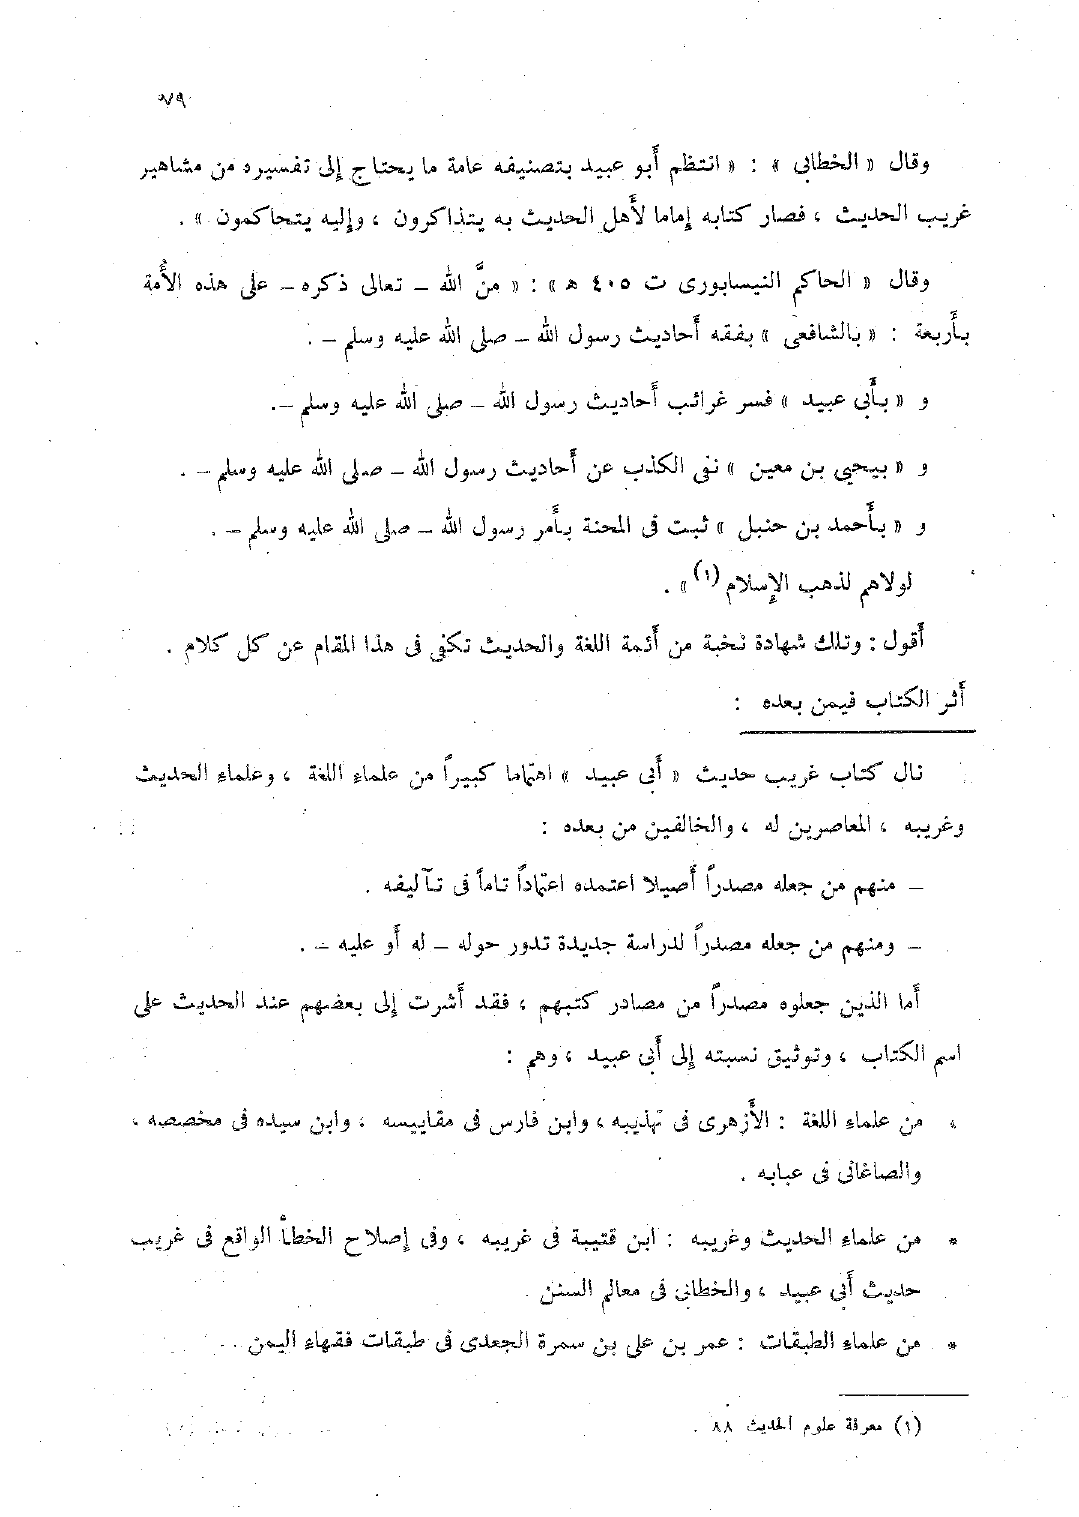 ٧٩
وقال « الخطابى » : « انتظم أبو عبيد بتصنيفه عامة ما يحتاج إلى تفسيره من مشاهير
غريب الحديث ، فصار كتابه إماما لأهل الحديث به يتذاكرون ، وإليه يتحاكمون » .
وقال « الحاكم النيسابورى ت ٤٠٥ ه » : « منَّ الله – تعالى ذكره – على هذه الأُمة
بأَربعة : « بالشافعى » بفقه أَحاديث رسول الله – صلى الله عليه وسلم – .
و « بأَبى عبيد » فسر غرائب أَحاديث رسول الله – صلى الله عليه وسلم –.
و « بيحيى بن معين » نفى الكذب عن أَحاديث رسول الله – صلى الله عليه وسلم – .
و « بأَحمد بن حنبل » ثبت فى المحنة بأَمر رسول الله – صلى الله عليه وسلم – .
لولاهم لذهب الإسلام (١) » .
أَقول : وتلك شهادة نخبة من أَئمة اللغة والحديث تكفى فى هذا المقام عن كل كلام .
أَثر الكتاب فيمن بعده :
نال كتاب غريب حديث « أَبى عبيد » اهتماما كبيراً من علماء اللغة ، وعلماء الحديث
وغريبه ، المعاصرين له ، والخالفين من بعده :
– منهم من جعله مصدراً أَصيلا اعتمده اعتماداً تاماً فى تآليفه .
– ومنهم من جعله مصدراً لدراسة جديدة تدور حوله – له أَو عليه – .
أَما الذين جعلوه مصدراً من مصادر كتبهم ، فقد أَشرت إلى بعضهم عند الحديث على
اسم الكتاب ، وتوثيق نسبته إلى أَبى عبيد ، وهم :
* من علماء اللغة : الأَزهرى فى تهذيبه ، وابن فارس فى مقاييسه ، وابن سيده فى مخصصه ،
والصاغانى فى عبابه .
* من علماء الحديث وغريبه : ابن قتيبة فى غريبه ، وفى إصلاح الخطأ الواقع فى غريب
حديث أَبى عبيد ، والخطابى فى معالم السنن .
* من علماء الطبقات : عمر بن على بن سمرة الجعدى فى طبقات فقهاء اليمن .
(١) معرفة علوم الحديث ٨٨ .